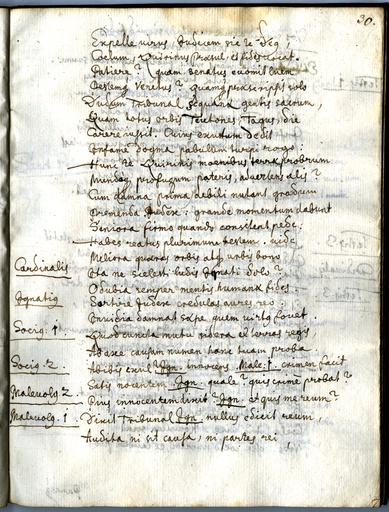 30.
Expelle virus, Judicem sic te
Coelum, Quirinus Praesul, et fides vocat.
Patiere? quam senatus evomit luem
Pestemq Veretus? quamq praescripsit solo
Dudum Tribunal Sequana gentis sacrum,
Quam totus orbis, Teutones, Tagus,
Carere iussit. Cuius exutum dedit
Infame dogma pabulum turpi rogo:
Hunc te Quirinis moenibus terrae probrum
profugum pateris, adversus alis?
Cum damna prima debili nutant gradu
Premenda Judex: grande momentum dabunt
Seniora firmo quando consistent pede.
Habes reatus plurimum pestem, vide
Meliora quaeras orbis atq urbis bono
Cardinalis Ita me scelesti ludis Ignati dolo?
O dubia semper mentis humanae fides
Ignatiq Sortire Judex credulas aures reo:
Invidia damnat saepe quem virtq fovet.
Sociq: 1. Quod cuncta mutu sidera et terras regis
Adaxe causam numen hanc tuam proba
Sociq: 2. Abibis exul? Ign. innocens. Male: 1. crimen facit
Satis nocentem. Ign. quale? quis crimen probat?
Malevolq 2. Prius innocentem dixit? Ign. et quis me reum?
Malevolq: 1. Dicit Tribunal Ign. nullus edicit reum,
Audita ni sit causa, ni partes rei